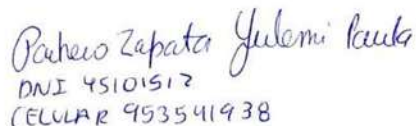 Pacheco Zapata Yulemi Paula
DNI 45101512
CELULAR 953541938